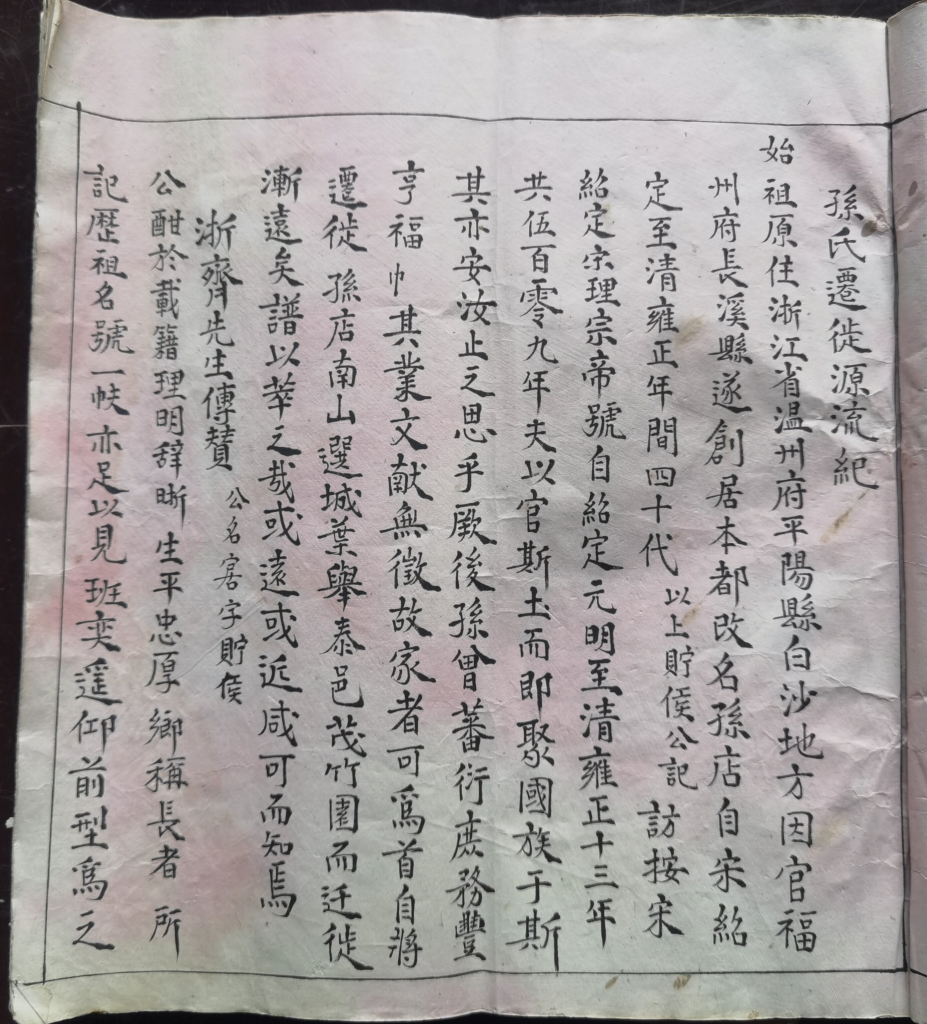 孫氏遷徙源流紀
始祖原住浙江省温州府平陽縣白沙地方因官福
州府長溪縣遂創居本都改名孫店自宋紹
定至清雍正年間四十代 以上貯侯公記 訪按宋
紹定宗理宗帝號自紹定元明至清雍正十三年
共伍百零九年夫以官斯土而即聚國族于斯
其亦安汝止之思乎厥後孫曾蕃衍庶務豐
亨福巾其業文献無徵故家者可爲首自將
遷徙孫店南山選城葉舉泰邑茂竹園而迁徙
漸遠矣譜以萃之哉或遠或近咸可而知焉
浙齊先生傳賛 公名害字貯侯
公酣於載籍理明辞晰生平忠厚鄉稱長者所
記歷祖名號一帙亦足以見班奕遥仰前型爲之